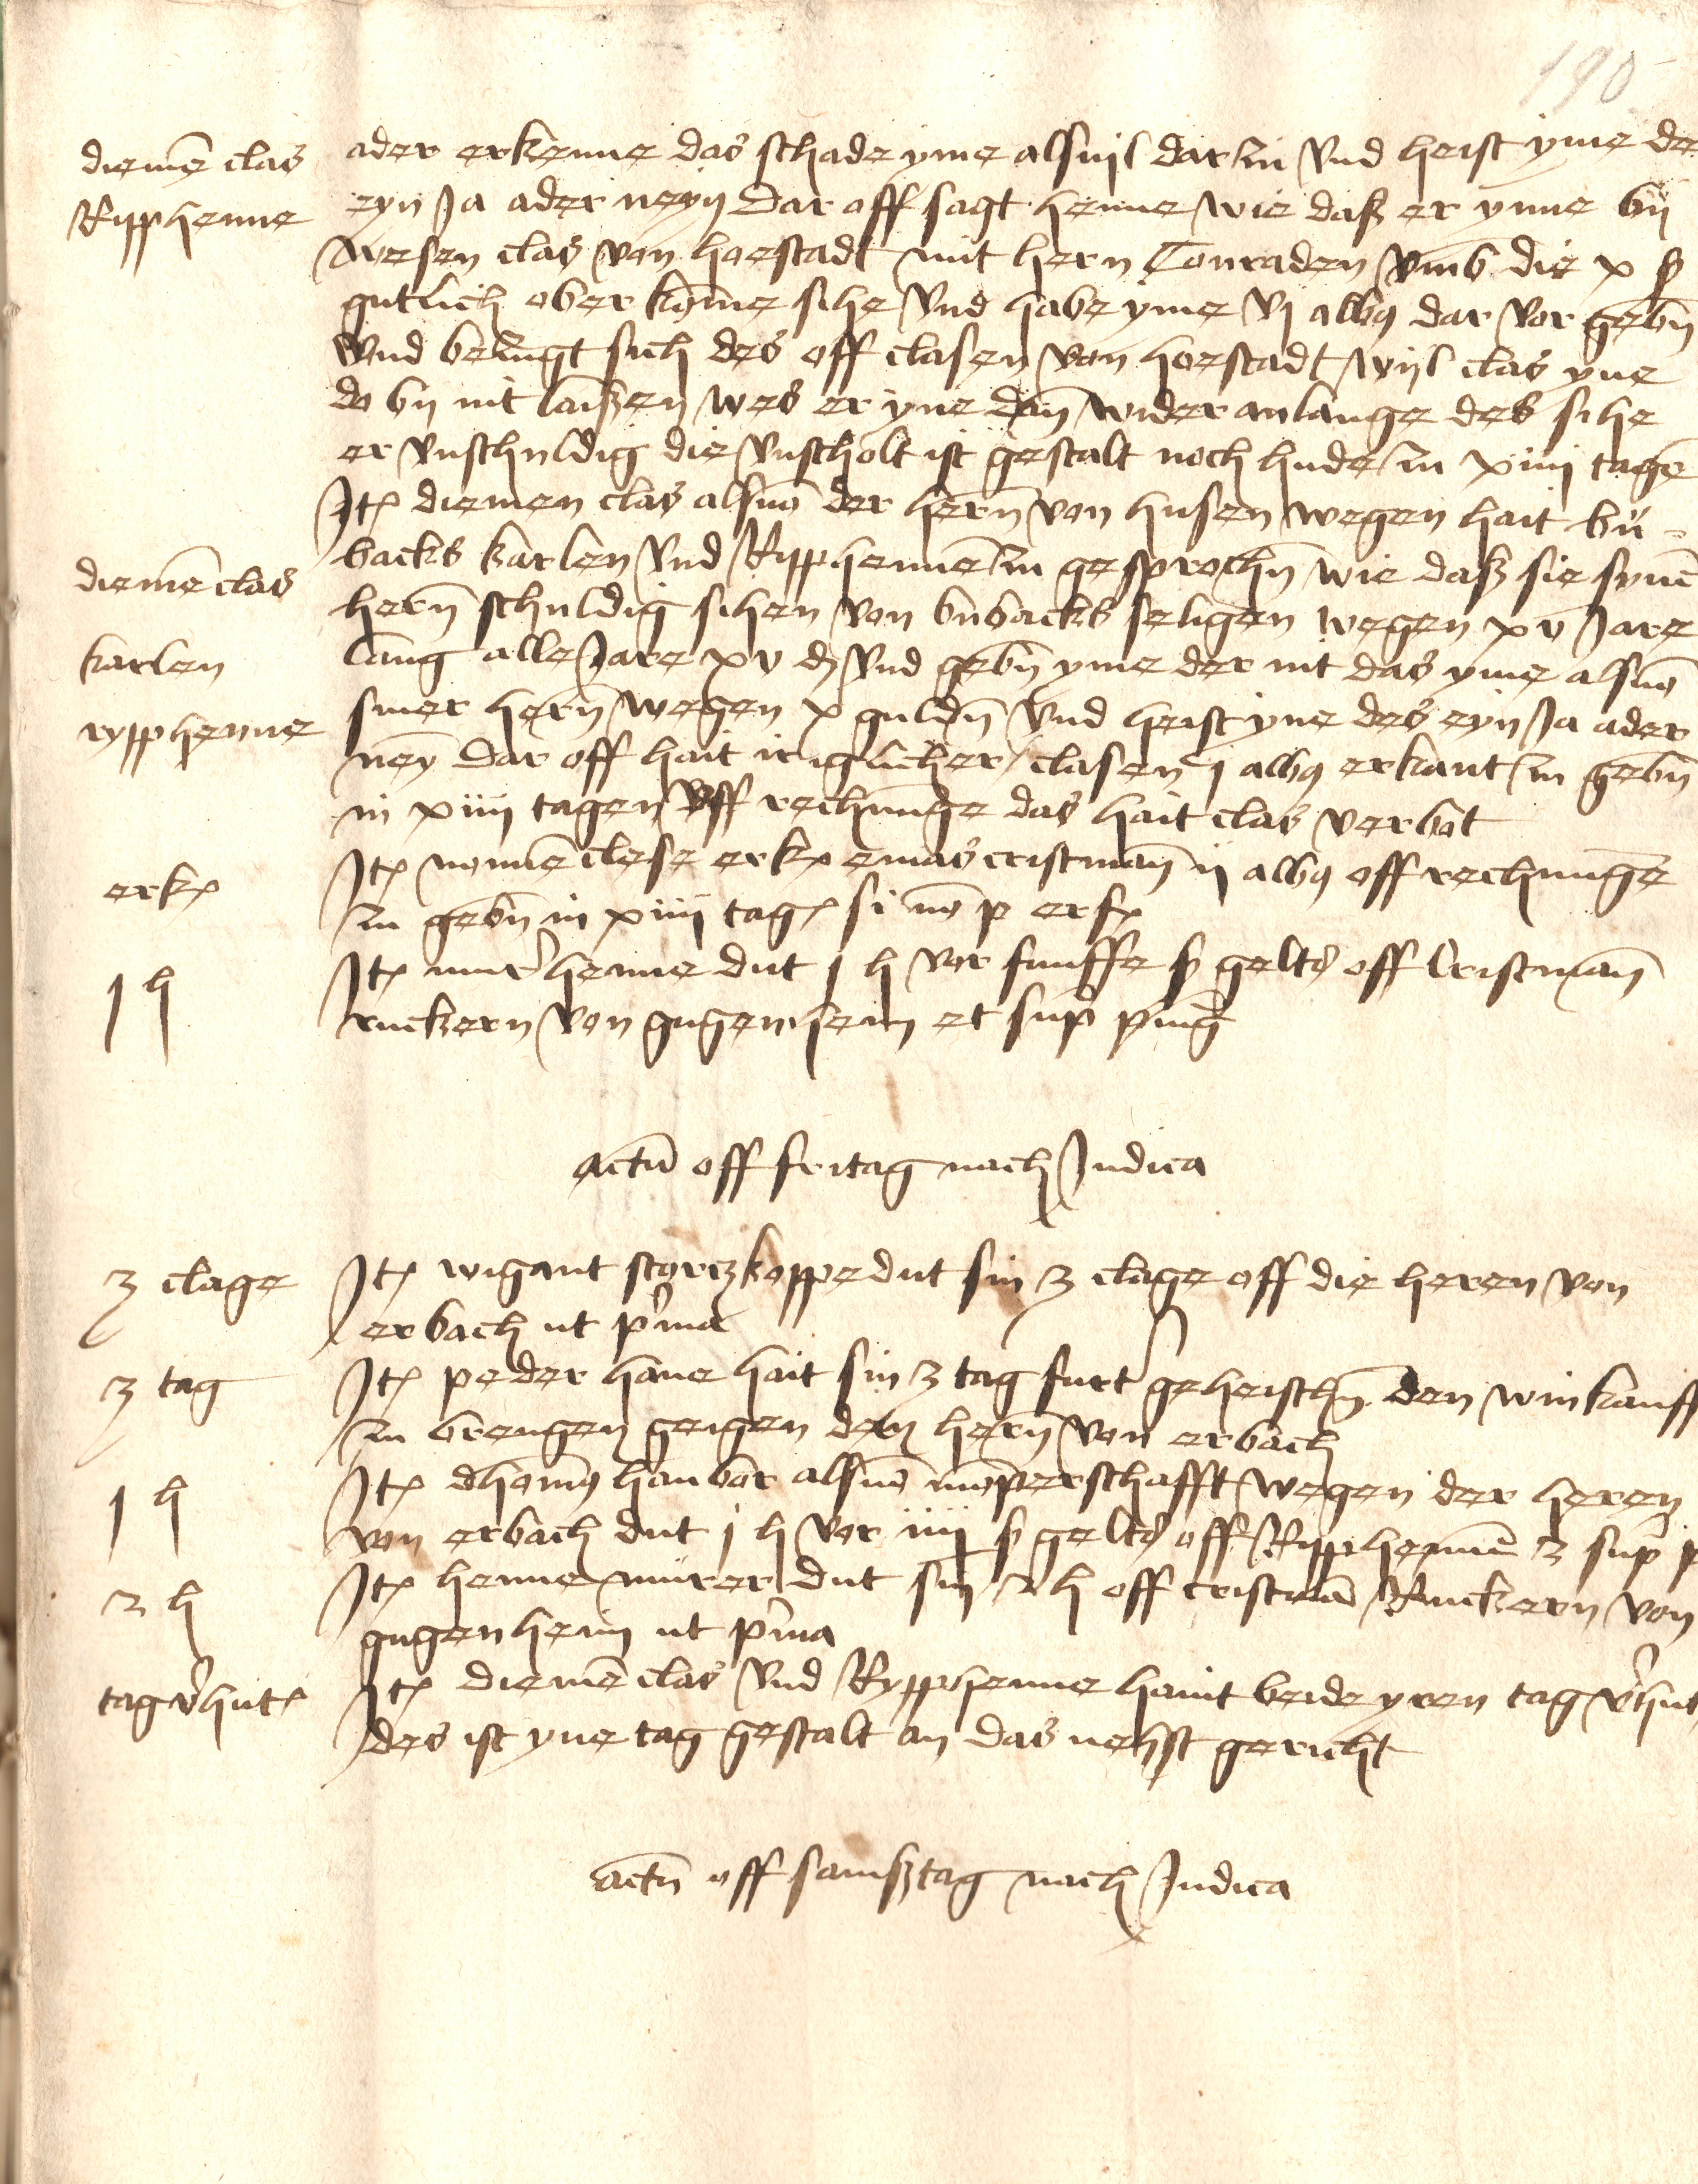 190
diemē clas
Ripphenne
ader erkenne das schade yme alsuil dar zu vnd heist yme des
eyn Ja ader neyn dar off sagt henne wie daß er ynne bij
wesen clas von hoestadt mit hern Conraden vmb die x ß
gutlich ober kōme sihe vnd habe yme vj albq dar vor gebn̄
vnd bedingt sich des off clasen von hoestadt wijl clas yne
do bij nit laißen wes er yne dan̄ wider anlange des sihe
er vnschuldig die vnscholt ist gestalt noch hude zu xiiij tagē
diemē clas
karlen
rypphenne
Itꝫ diemen clas alsuō der hern̄ von husen wegen hait bu-
backs karlen vnd Ripphennē zu gesprochn̄ wie daß sie synē
hern̄ schuldig sihen von bubacks seligen wegen xv Jare
lang alle Jare xv d vnd gebn̄ yme der nit das yme alsuō
siner hern̄ wegen x guldn̄ vnd heist yne des eyn Ja ader
ney dar off hait ir iglicher clasen j albq erkant zu gebn̄
in xiiij tagen vff rechnunge das hait clas verbot
erkꝫ
Itꝫ nonnē clese erkꝫ emas cristman̄ ij albq off rechnunge
zu gebn̄ in xiiij tagꝫ si nō p erfꝫ
1 h
Itꝫ mur̕henne dut j h vor funffe ß gelts off Cristman̄
ruckern von gugenheim et sup̄ pīng
actū off fritag nach Judica
3 clage
Itꝫ wigant storczkoppe dut sin 3 clage off die heren von
erbach ut p̕ma
3 tag
Itꝫ peder hane hait sin 3 tag furt geheischn̄ den winkauff
zu brengen geigen den hern̄ von erbach
1 h
Itꝫ dhomꝰ hanbor alsuō mōperschafft wegen der heren
von erbach dut j h vor iiij ß gelts off Ripphennē z sup̄ p
2 h
Itꝫ henne murer dut sin 2 h off cristmā Ruckern von
gugenheim ut p̕ma
tag v̕hutꝫ
Itꝫ diemē clas vnd Rypphenne haint beide yren tag v̕hut
des ist yne tag gestalt an das nehst gericht
actū off samßtag nach Judica